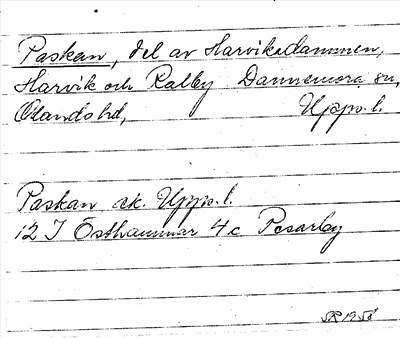 Paskan, del av Harviksdammen,
Harvik och Ralby Dannemora sn,
Olands hd, Upps. l.
Paskan ek. Upps. l.
12 I Östhammar 4c Pesarby
1958